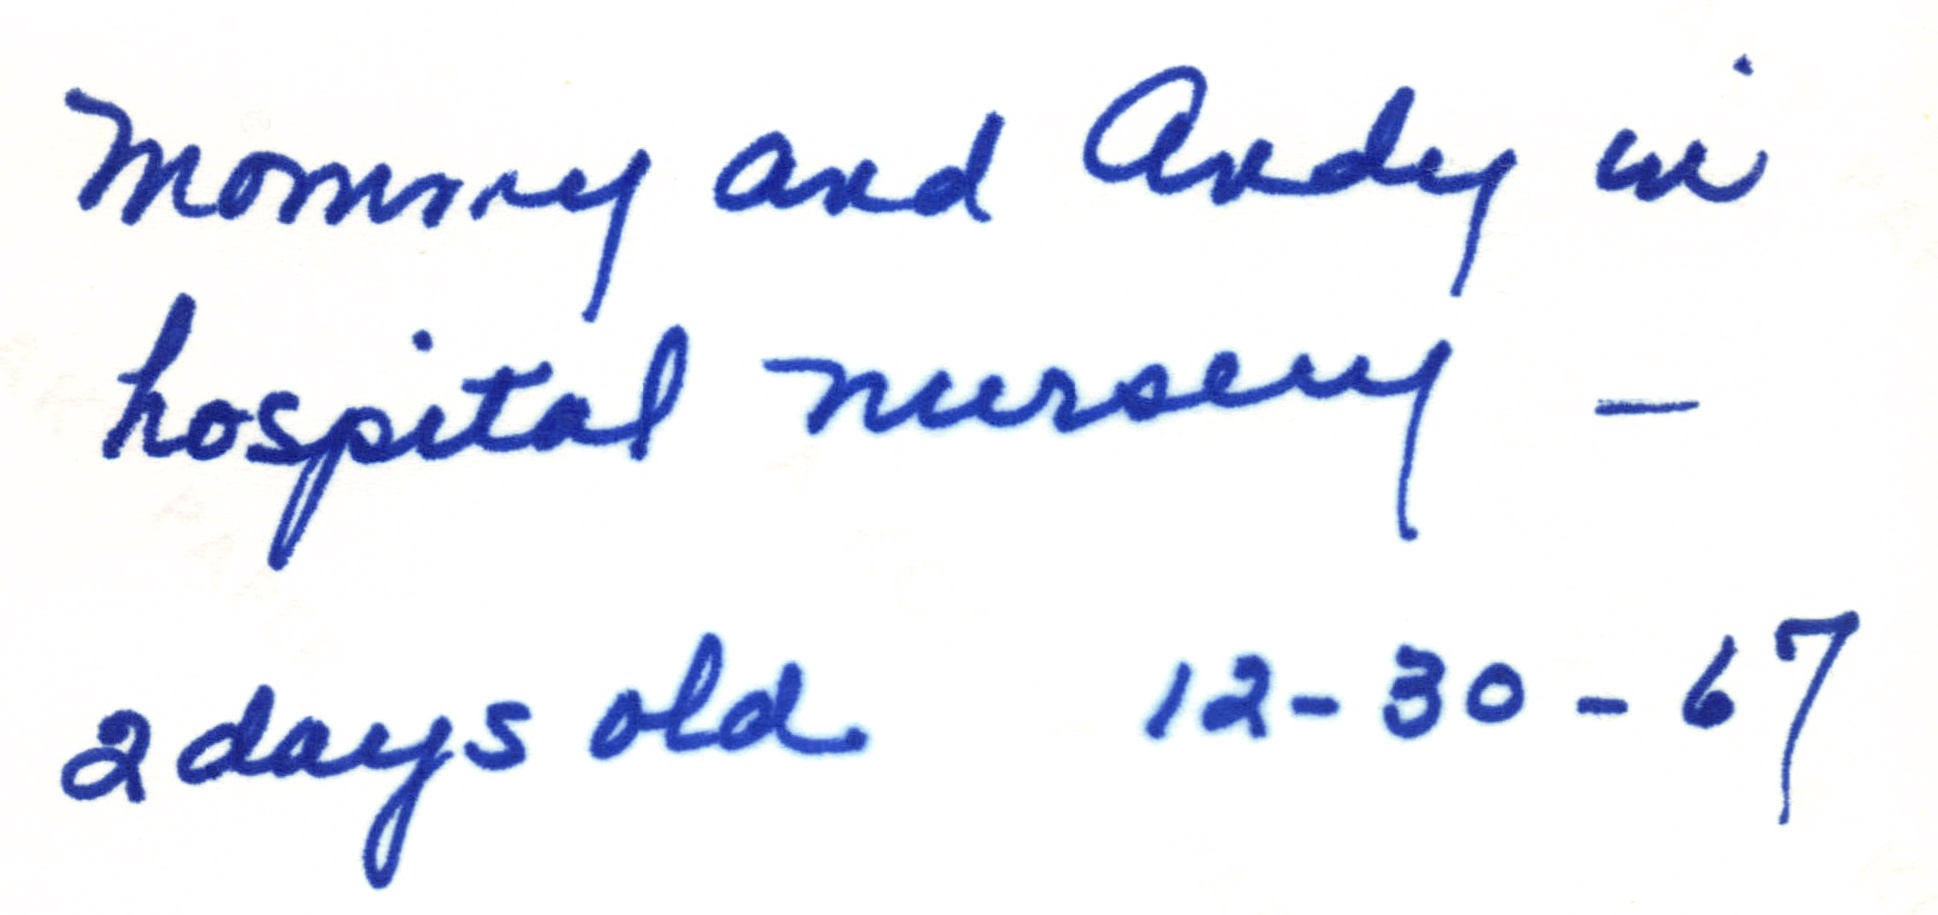 Mommy and Andy in
hospital nursery -
2 days old. 12-30-67